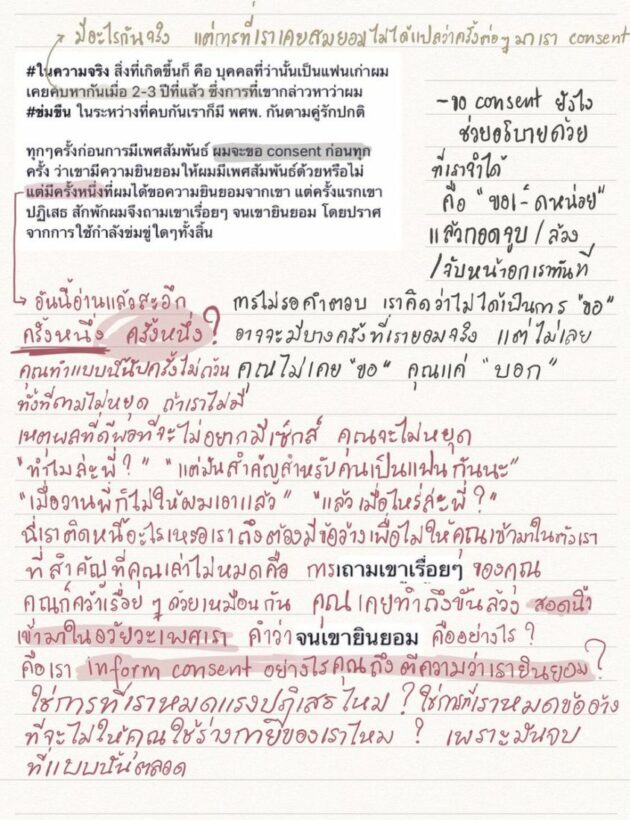 มีอะไรกันจริง แต่การที่เราเคยสมยอมไม่ได้แปลว่าครั้งต่อๆ มาเรา consent
#ในความจริง สิ่งที่เกิดขึ้นก็ คือ บุคคลที่ว่านั้นเป็นแฟนเก่าผม
เคยคบหากันเมื่อ 2-3 ปีที่แล้ว ซึ่งการที่เขากล่าวหาว่าผม
#ข่มขืน ในระหว่างที่คบกันเราก็มี พศพ. กันตามคู่รักปกติ
ทุกๆครั้งก่อนการมีเพศสัมพันธ์ ผมจะขอ consent ก่อนทุก
ครั้ง ว่าเขามีความยินยอมให้ผมมีเพศสัมพันธ์ด้วยหรือไม่
แต่มีครั้งหนึ่งที่ผมได้ขอความยินยอมจากเขา แต่ครั้งแรกเขา
ปฏิเสธ สักพักผมจึงถามเขาเรื่อยๆ จนเขายินยอม โดยปราศ
จากการใช้กำลังข่มขู่ใดๆทั้งสิ้น
-ขอ consent ยังไง
ช่วยอธิบายด้วย
ที่เราจำได้
คือ "ขอเ-็ดหน่อย"
แล้วกอดจูบ/ล้วง
/จับหน้าอกเราทันที
การไม่รอคำตอบ เราคิดว่าไม่ได้เป็นการ "ขอ"
อาจจะมีบางครั้งที่เรายอมจริง แต่ไม่เลย
คุณไม่เคย "ขอ" คุณแค่ "บอก"
อันนี้อ่านแล้วสะอึก
ครั้งหนึ่ง ครั้งหนึ่ง?
คุณทำแบบนี้นับครั้งไม่ถ้วน
ทั้งที่ถามไม่หยุด ถ้าเราไม่มี
เหตุผลที่ดีพอที่จะไม่อยากมีเซ็กส์ คุณจะไม่หยุด
"ทำไมล่ะพี่?" "แต่มันสำคัญสำหรับคนเป็นแฟนกันนะ"
"เมื่อวานพี่ก็ไม่ให้ผมเอาแล้ว" "แล้วเมื่อไหร่ล่ะพี่?"
นี่เราติดหนี้อะไรเหรอเราถึงต้องมีข้ออ้างเพื่อไม่ให้คุณเข้ามาในตัวเรา
ที่สำคัญที่คุณเล่าไม่หมดคือ การเถามเขาเรื่อยๆ ของคุณ
คุณก็คว้าเรื่อยๆ ด้วยเหมือนกัน คุณเคยทำถึงขั้นล้วง สอดนิ้ว
เข้ามาในอวัยวะเพศเรา คำว่าจนเขายินยอม คืออย่างไร?
คือเรา inform consent อย่างไรคุณถึงตีความว่าเรายินยอม?
ใช่การที่เราหมดแรงปฏิเสธไหม? ใช่การที่เราหมดข้ออ้าง
ที่จะไม่ให้คุณใช้ร่างกายของเราไหม? เพราะมันจบ
ที่แบบนั้นตลอด